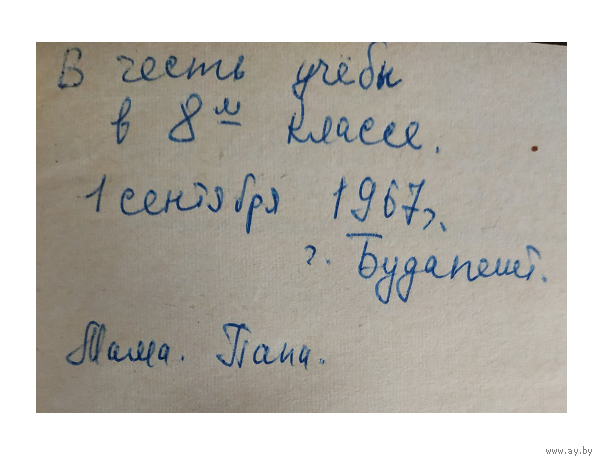 В честь учёбы
в 8м классе.
1 сентября 1967г.
г. Будапешт.
Мама. Папа.
www.ay.by